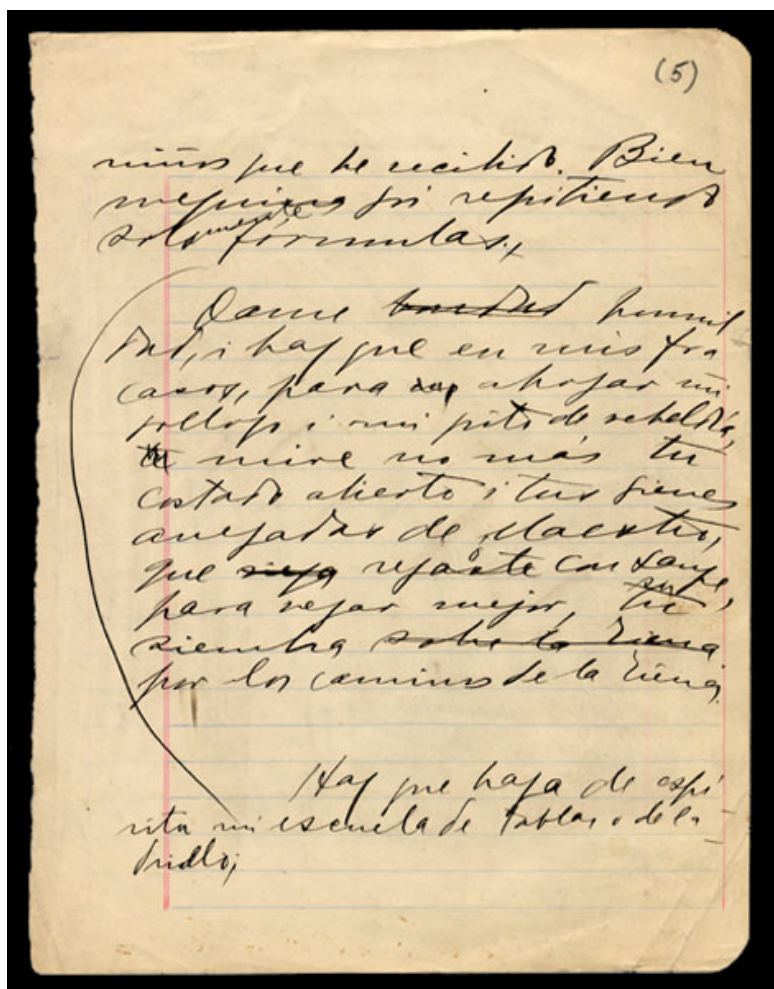 (5)
niños que he recibido. Bien
mezquina fui repitiendo
solamente fórmulas.
Dame bondad humil
dad, i haz que en mis fra
casos, para ahogar mi
sollozo i mi grito de rebeldía,
mire no más tu
costado abierto i tus sienes
de Maestro,
que riega regaste con sangre,
para regar mejor, tu su
siembra sobre la tierra
por los caminos de la tierra.
Haz que haga de espí
ritu mi escuela de tablas o de la
drillo;